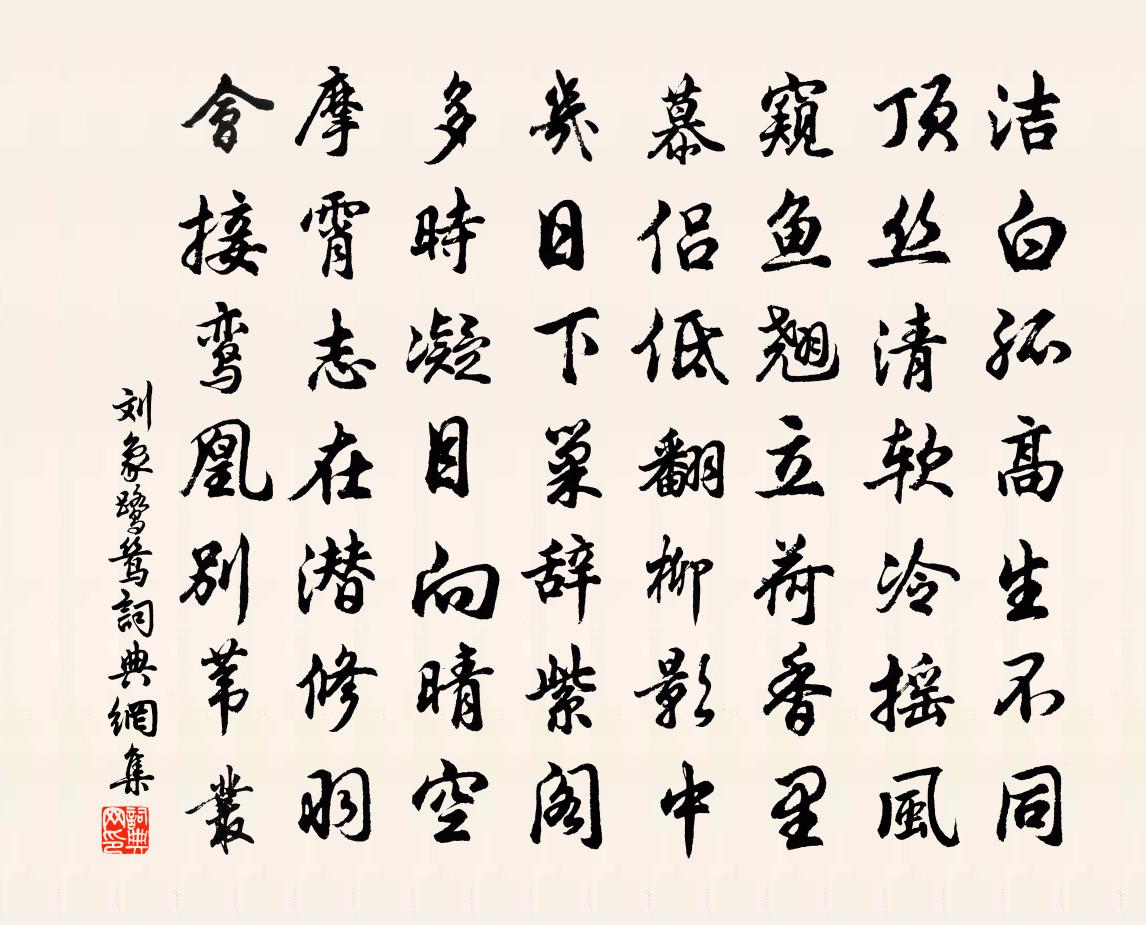 洁白孤高生不同
顶丝清软冷摇風
窺鱼翘立荷香里
慕侣低翻柳影中
幾日下巢辞紫阁
多時凝目向晴空
摩霄志在潜修羽
會接鸾凰别苇叢
刘象鹭鸶詞典網集
詞典网印